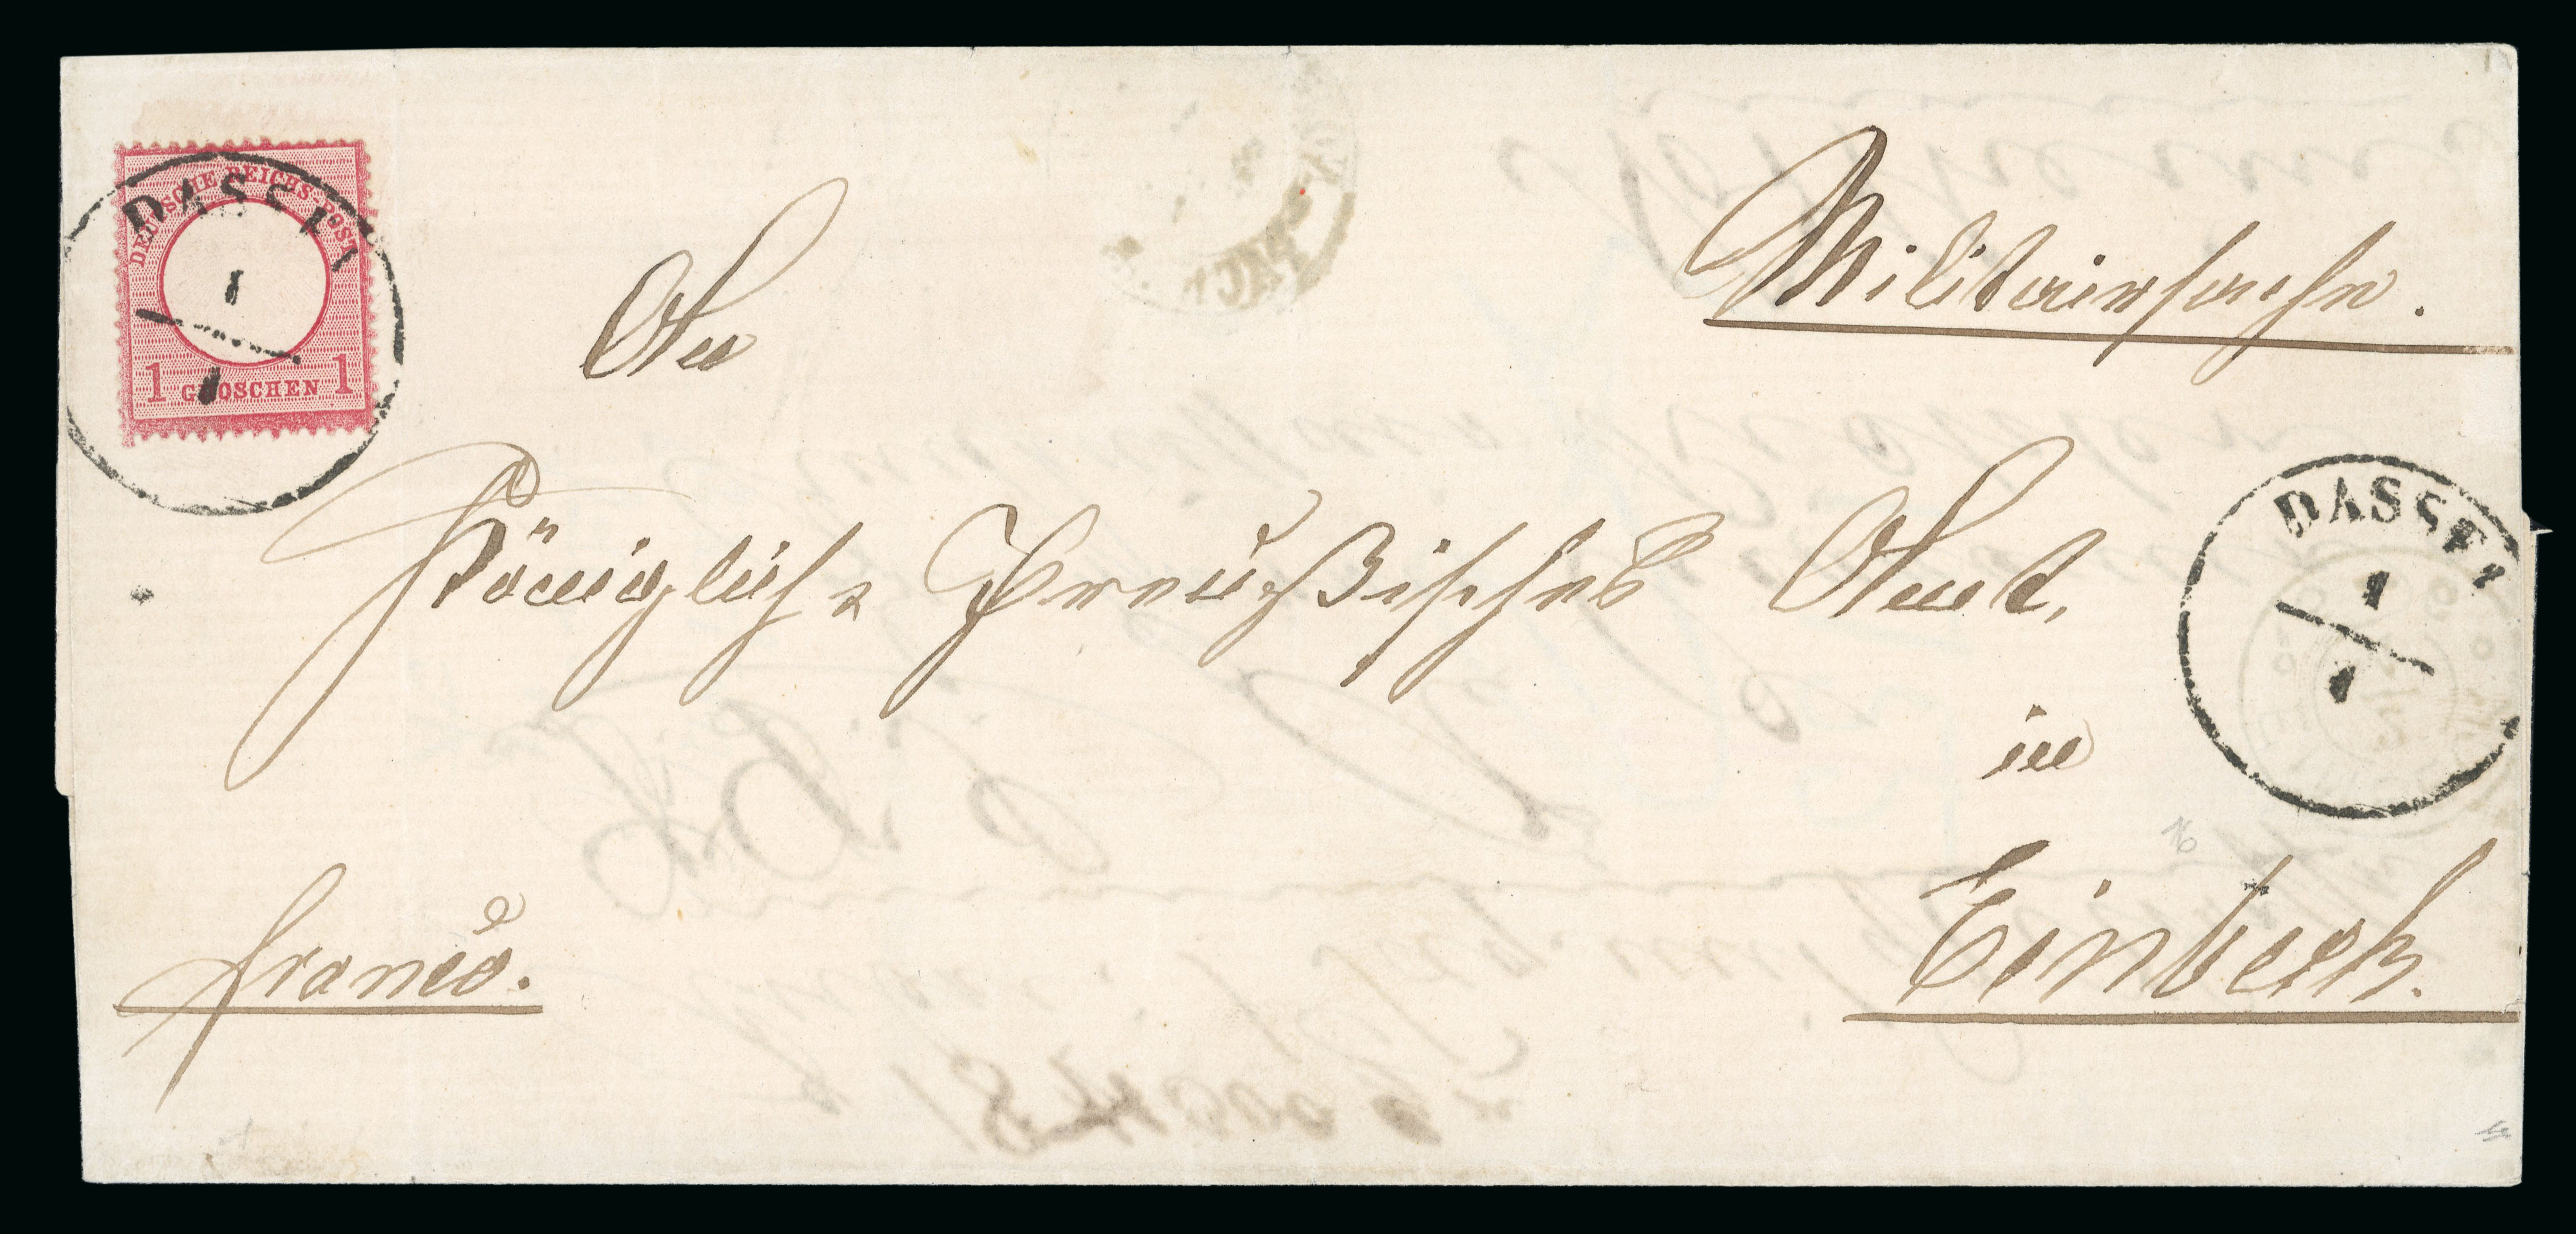 DEUTSCHE REICHS-POST
1 GROSCHEN 1
DASSEL
1
1
Militairsache.
An
Königlich Preußisches Amt,
in
Einbeck.
franco.
DASSEL
1
1